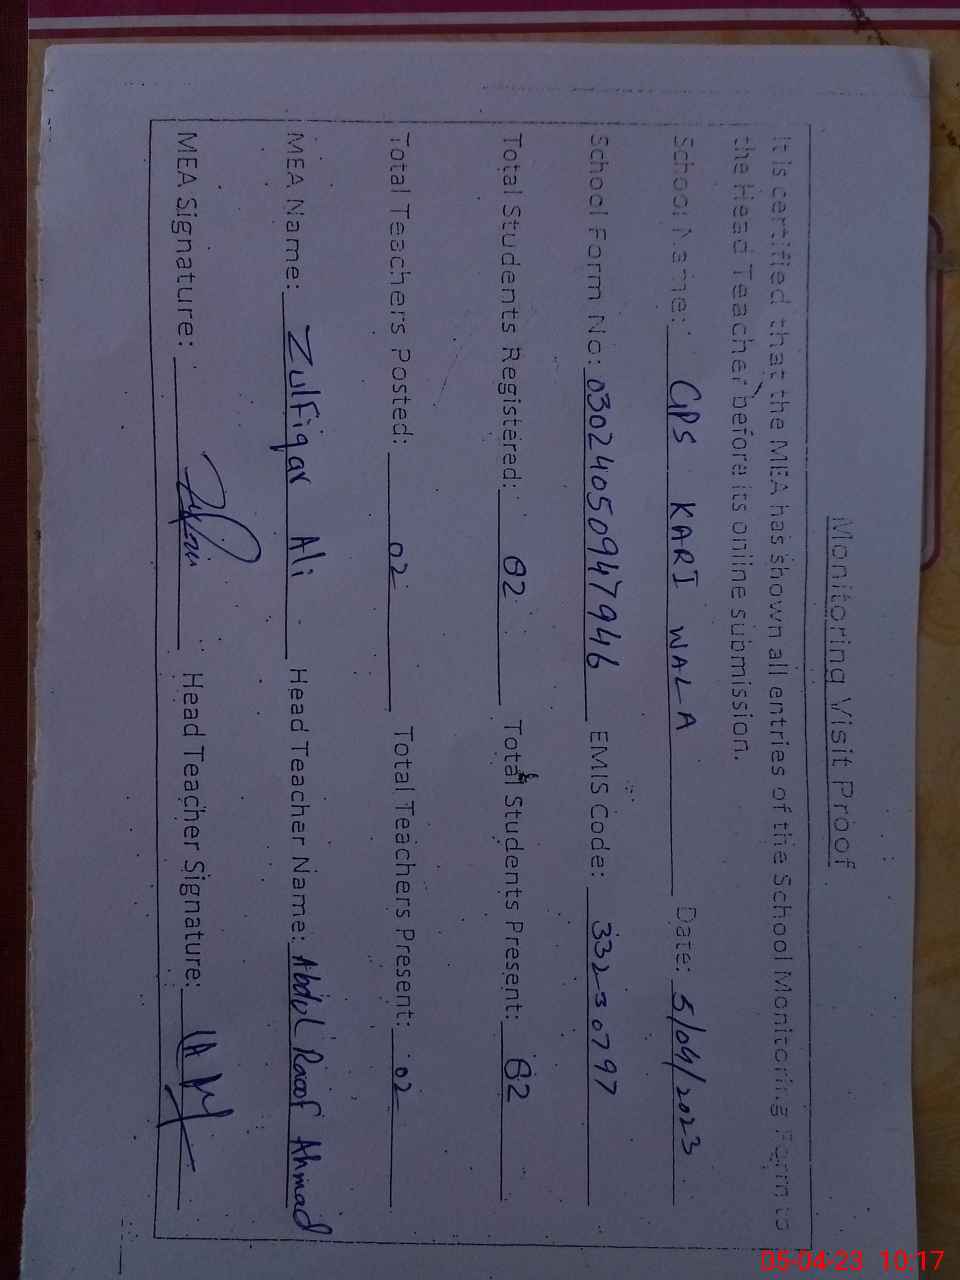 Monitoring Visit Proof
It is certified that the MEA has shown all entries of the School Monitoring Form to
the Head Teacher before its online submission.
School Name: GPS KARI WALA Date: 5/04/2023
School Form No: 0302405094794 6 EMIS Code: 33230797
Total Students Registered: 82 Total Students Present: 82
Total Teachers Posted: 02 Total Teachers Present: 02
MEA Name: Zulfiqar Ali Head Teacher Name: Abdul Raoof Ahmad
MEA Signature: Head Teacher Signature:
05-04-23 10:17